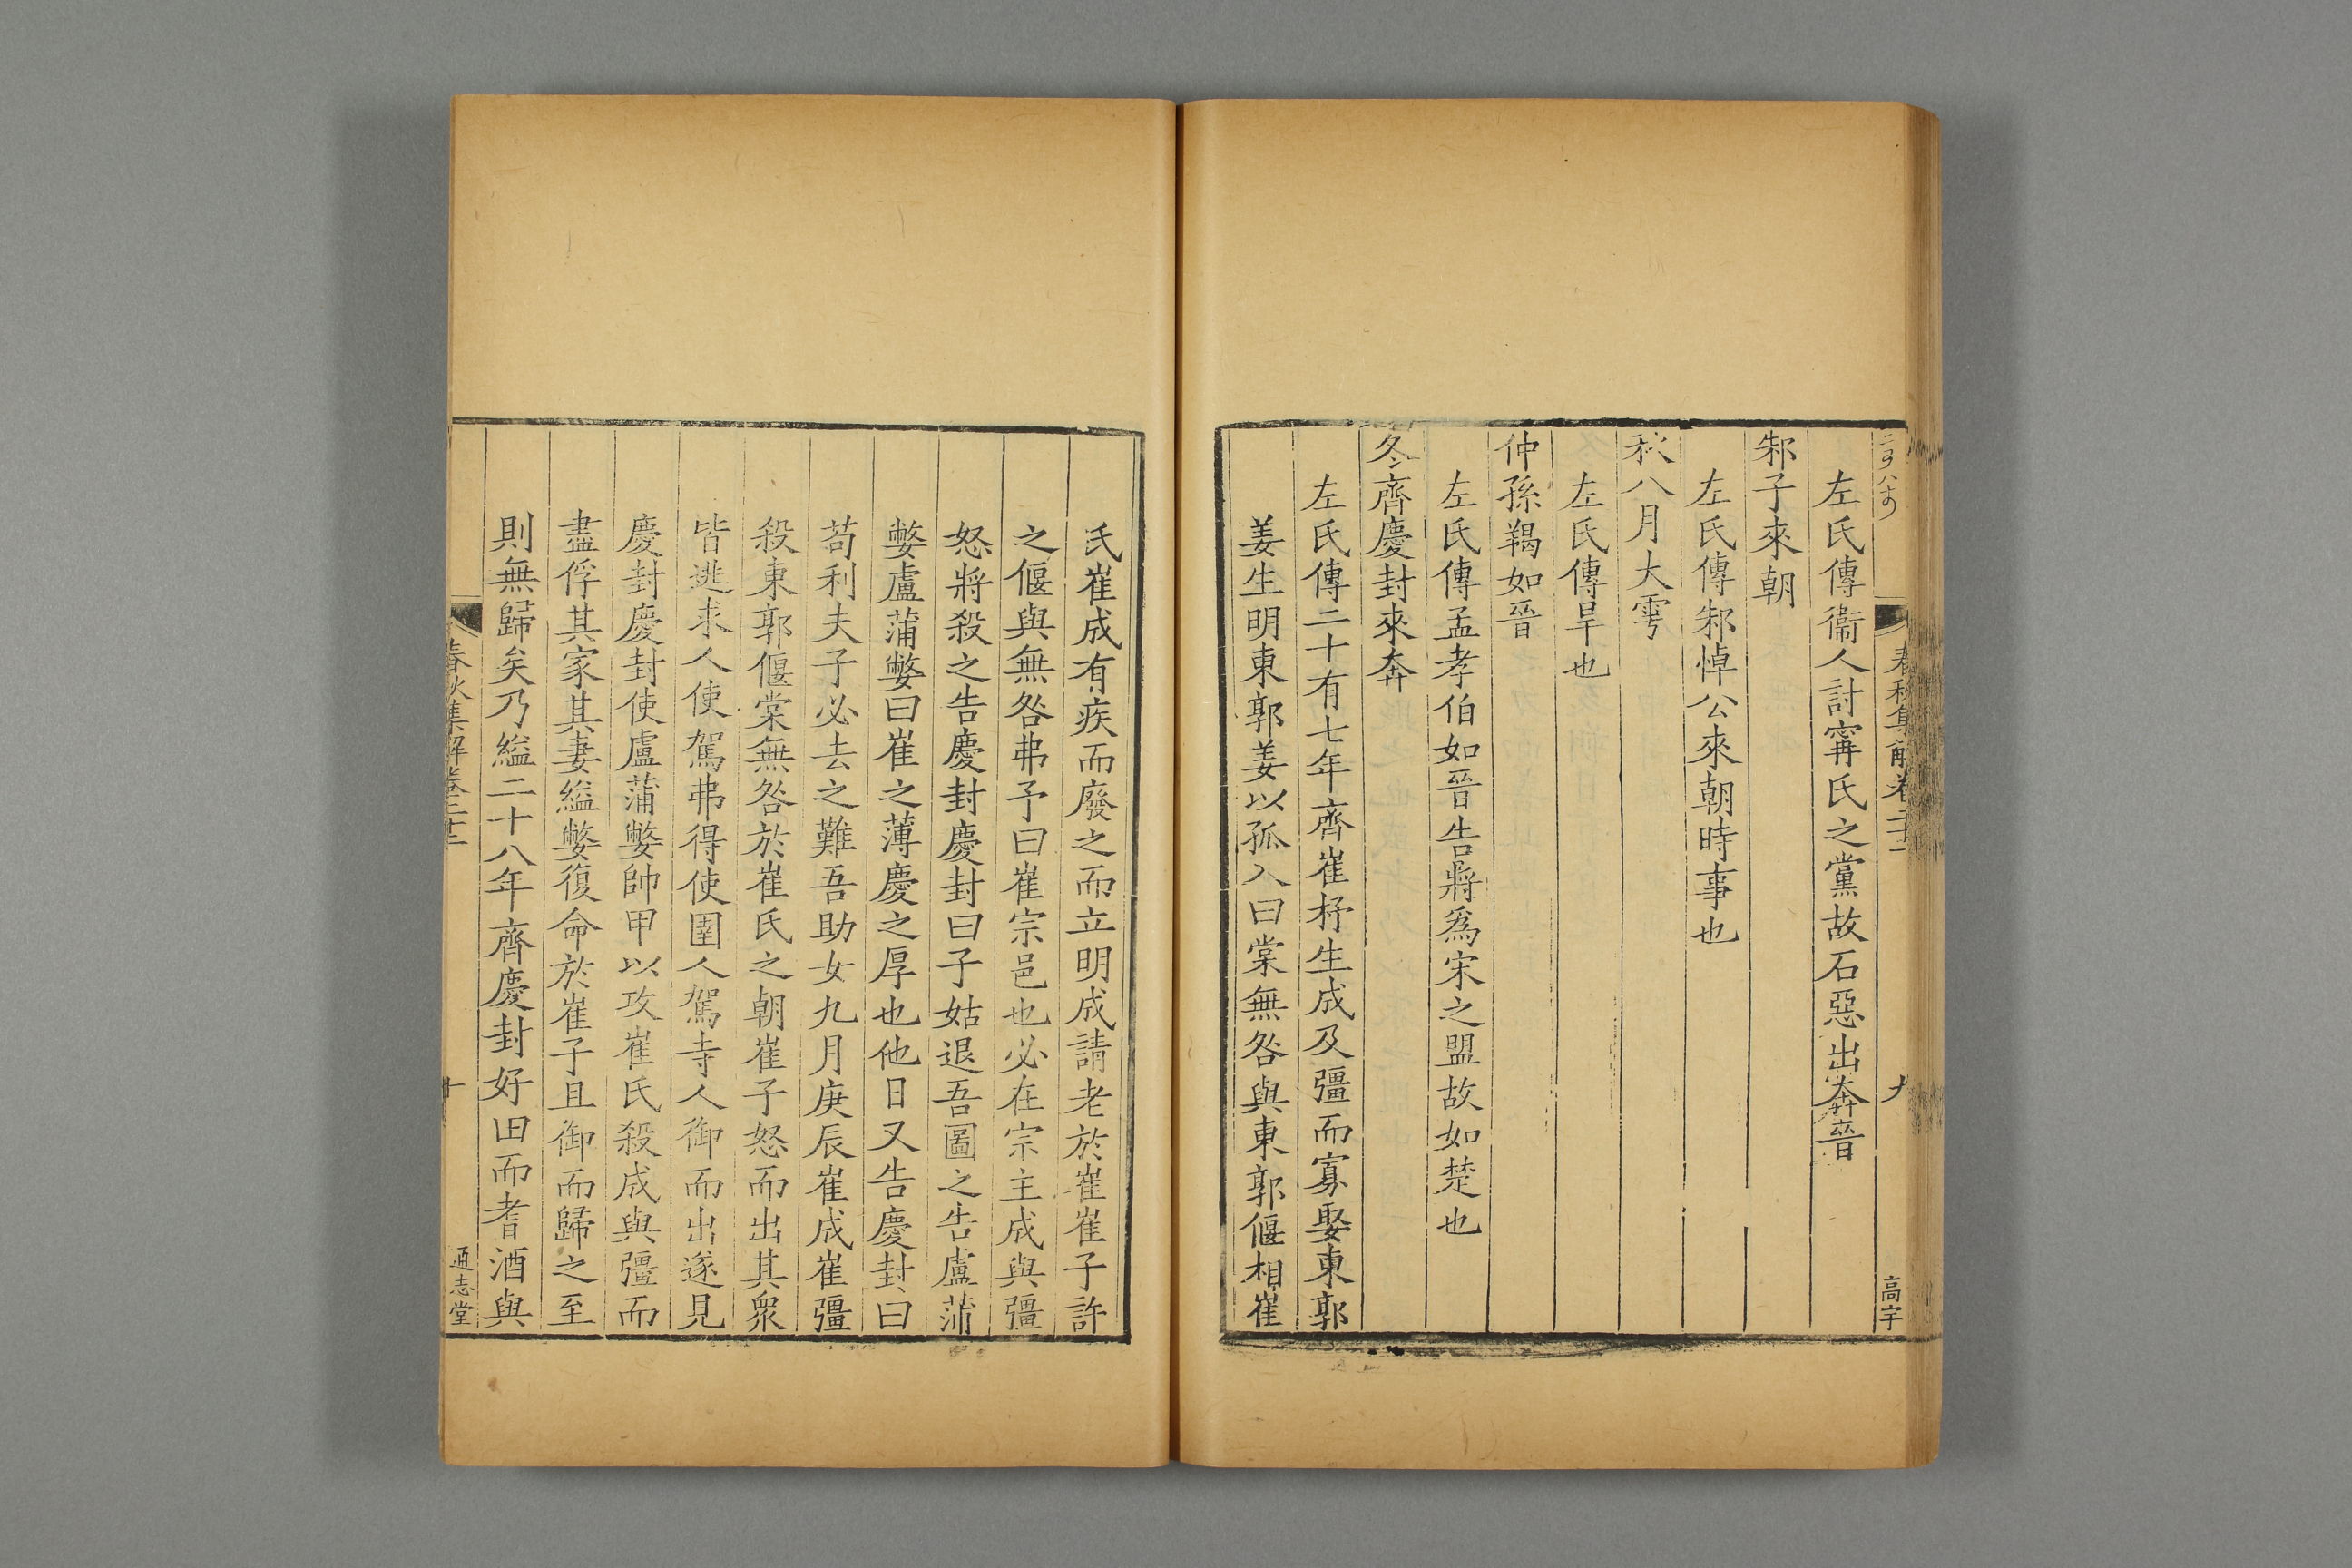 春秋集解卷二十二
九
高宇
左氏傳衞人討甯氏之黨故石惡出奔晉
邾子來朝
左氏傳邾悼公來朝時事也
秋八月大雩
左氏傳旱也
仲孫羯如晉
左氏傳孟孝伯如晉告將爲宋之盟故如楚也
冬齊慶封來奔
左氏傳二十有七年齊崔杼生成及彊而寡娶東郭
姜生明東郭姜以孤入曰棠無咎與東郭偃相崔
氏崔成有疾而廢之而立明成請老於崔崔子許
之偃與無咎弗予曰崔宗邑也必在宗主成與彊
怒將殺之告慶封慶封曰子姑退吾圖之告盧蒲
嫳盧蒲嫳曰崔之薄慶之厚也他日又告慶封曰
苟利夫子必去之難吾助女九月庚辰崔成崔彊
殺東郭偃棠無咎於崔氏之朝崔子怒而出其衆
皆逃求人使駕弗得使圉人駕寺人御而出遂見
慶封慶封使盧蒲嫳帥甲以攻崔氏殺成與彊而
盡俘其家其妻縊嫳復命於崔子且御而歸之至
則無歸矣乃縊二十八年齊慶封好田而耆酒與
春秋集解卷二十二
十
通志堂